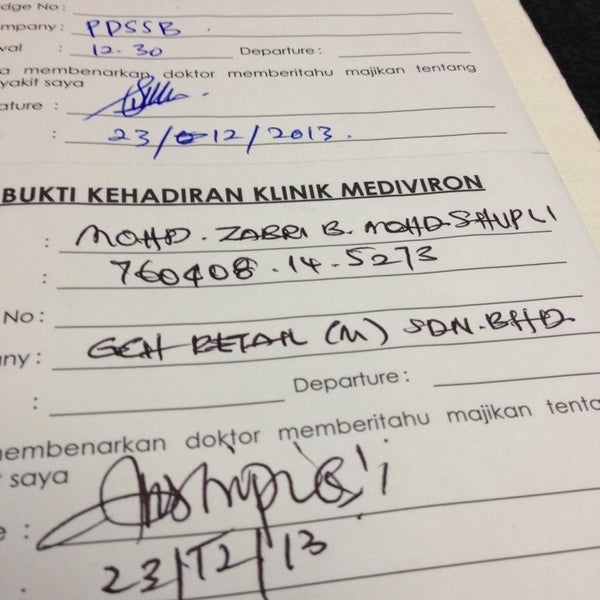 dge No:
mpany : PDSSB
val : 12.30 Departure:
a membenarkan doktor memberitahu majikan tentang
yakit saya
ature :
: 23/12/2013.
BUKTI KEHADIRAN KLINIK MEDIVIRON
: MOHD. ZABRI B. MOHD. SHUPLI
: 760408.14.5273
No:
ny : GCH RETAIL (M) SDN. BHD.
: Departure:
embenarkan doktor memberitahu majikan tenta
saya
e :
23/12/13